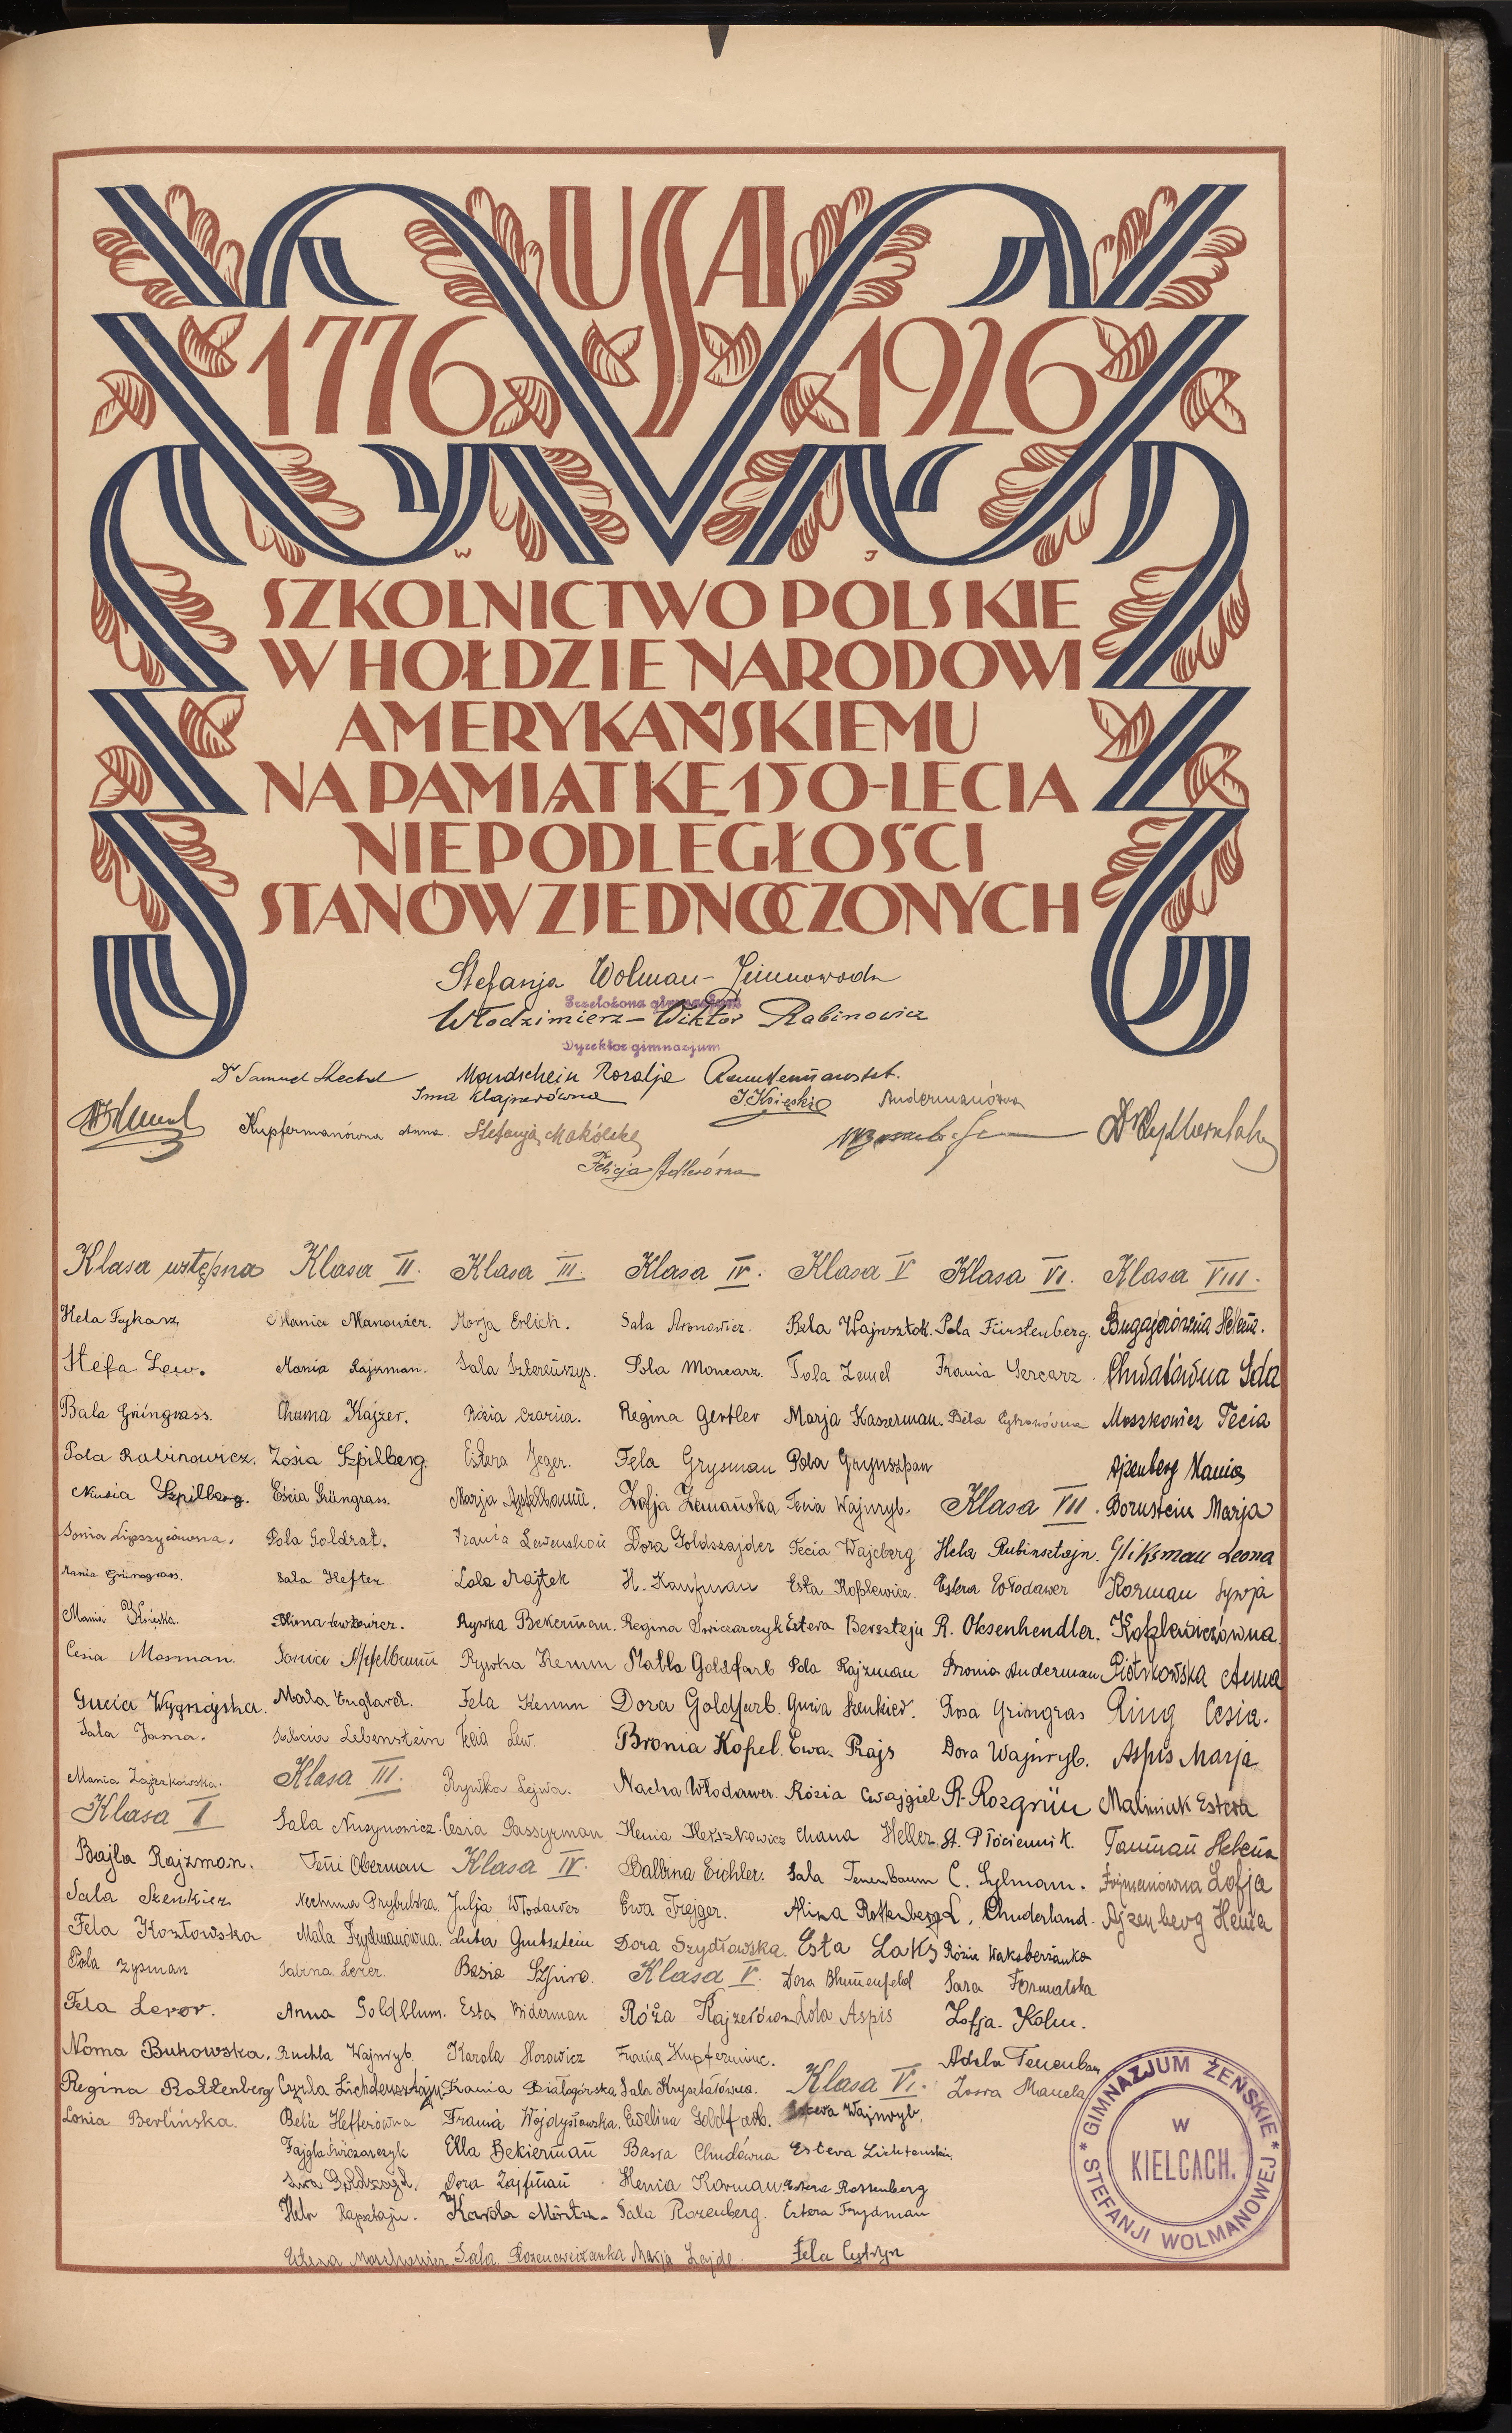 USA
1776 1926
W J
SZKOLNICTWO POLSKIE
W HOŁDZIE NARODOWI
AMERYKAŃSKIEMU
NA PAMIĄTKĘ 150-LECIA
NIEPODLEGŁOŚCI
STANÓW ZJEDNOCZONYCH
Stefanja Wolman-
Przełożona gimnazjum
Włodzimierz-Wiktor Rabinowicz
Dyrektor gimnazjum
Dr Samuel
Mandschein Rozalja
Irma Klajnerówna
Andermanówna
Kupfermanówna Anna
Stefanja Makólska
Felicja Adlerówna
Klasa wstępna
Hela Fykarz
Stefa Lew.
Bala Grüngrass.
Pola Rabinowicz.
Musia Szpilberg.
Sonia Lipszycówna.
Mania Grüngrass.
Mania Książka.
Cesia Mosman.
Gucia Wygnajska.
Sala Jama.
Mania Zajączkowska.
Klasa I
Bajla Rajzman.
Sala Szenkier
Fela Kozłowska
Pola Zysman
Fela Lewor.
Noma Bukowska.
Regina Rottenberg
Lonia Berlińska.
Klasa II.
Mania Manowicz.
Mania Rajzman.
Chuma Kajzer.
Zosia Szpilberg.
Escia Grüngrass.
Pola Goldrat.
Sala Hefter
Lewkowicz.
Sonia Apfelbaum
Mala England.
Salcia Lebenstein
Klasa III.
Sala Nusynowicz.
Feni Oberman
Nechuma Prybulska.
Mala Frydmanówna.
Sabina Lewer.
Anna Goldblum.
Ruchla Wajnryb.
Czysla Lichtensztajn
Bela Hefterówna
Fajgla Świczarczyk
Hela Rapsztajn.
Klasa III.
Morja Erlich.
Sala Szterenszys.
Rózia Czarna.
Estera Jeger.
Marja Apfelbaum.
Frania Lewensohn
Lola Majtek
Rywka Bekerman.
Rywka Kemm
Fela Kemm
Fela Lew.
Rywka Lejwa.
Cesia Passyrman
Klasa IV.
Julja Włodawer
Luba Gutsztein
Basia Szpiro.
Esta Biderman
Karola Horowicz
Frania Białogórska
Frania Wojdysławska.
Ella Bekierman
Dora Zajfman
Karola Mintz.
Sala Rozencweiżanka
Klasa IV.
Sala Aronowicz.
Pola Moncarz.
Regina Gertler
Fela Grysman
Zofja Zemańska
Dora Goldszajder
H. Kaufman
Regina Świczarczyk
Matla Goldfarb
Dora Goldfarb.
Bronia Kopel.
Nacha Włodawer.
Henia Herszkowicz
Balbina Eichler.
Ewa Frejger.
Dora Szydłowska.
Klasa V.
Róża Kajzerówna
Frania Kupferminc.
Sala Kryształówna.
Ewelina Goldfarb.
Basia Chudówna
Henia Korman
Sala Rozenberg.
Marja Zajde.
Klasa V
Bela Wajnsztok.
Tola Zemel
Marja Kaszerman.
Pola Grynszpan
Fenia Wajnryb.
Fecia Wajcberg
Esta Koplewicz.
Estera Berszteju
Pola Rajzman
Gucia Szenkier.
Ewa Prajs
Rózia Cwajgiel
Chana Heller
Sala Tenenbaum
Alina Rottenberg
Esta Laks
Dora Blumenfeld
Lola Aspis
Klasa VI.
Estera Wajnryb.
Estera Lichtensztein
Estera Rottenberg
Estera Frydman
Fela Cytryn
Klasa VI.
Pola Fürstenberg.
Frania Sercarz.
Bela Cytronówna
Klasa VII
Hela Rubinsztajn.
Estera Włodawer
R. Oksenhendler.
Bronia Anderman
Rosa Gringras
Dora Wajnryb.
R. Rozgrün
St. Płóciennik.
C. Sylman.
L. Chuderland.
Rózia Waksberżanka
Sara Formalska
Zofja Kolm.
Adela Tenenbaum
Klasa VIII.
Bugajerówna Helena.
Chwatówna Ida
Moszkowicz Fecia
Ajzenberg Mania
Bornstein Marja
Gliksman Leona
Korman Sywja
Koplewiczówna
Piotrkowska Anna
Ring Cesia.
Aspis Marja
Maliniak Estera
Tauman Helena
Frajmanówna Zofja
Ajzenberg Henia
* GIMNAZJUM ŻEŃSKIE * STEFANJI WOLMANOWEJ
W
KIELCACH.